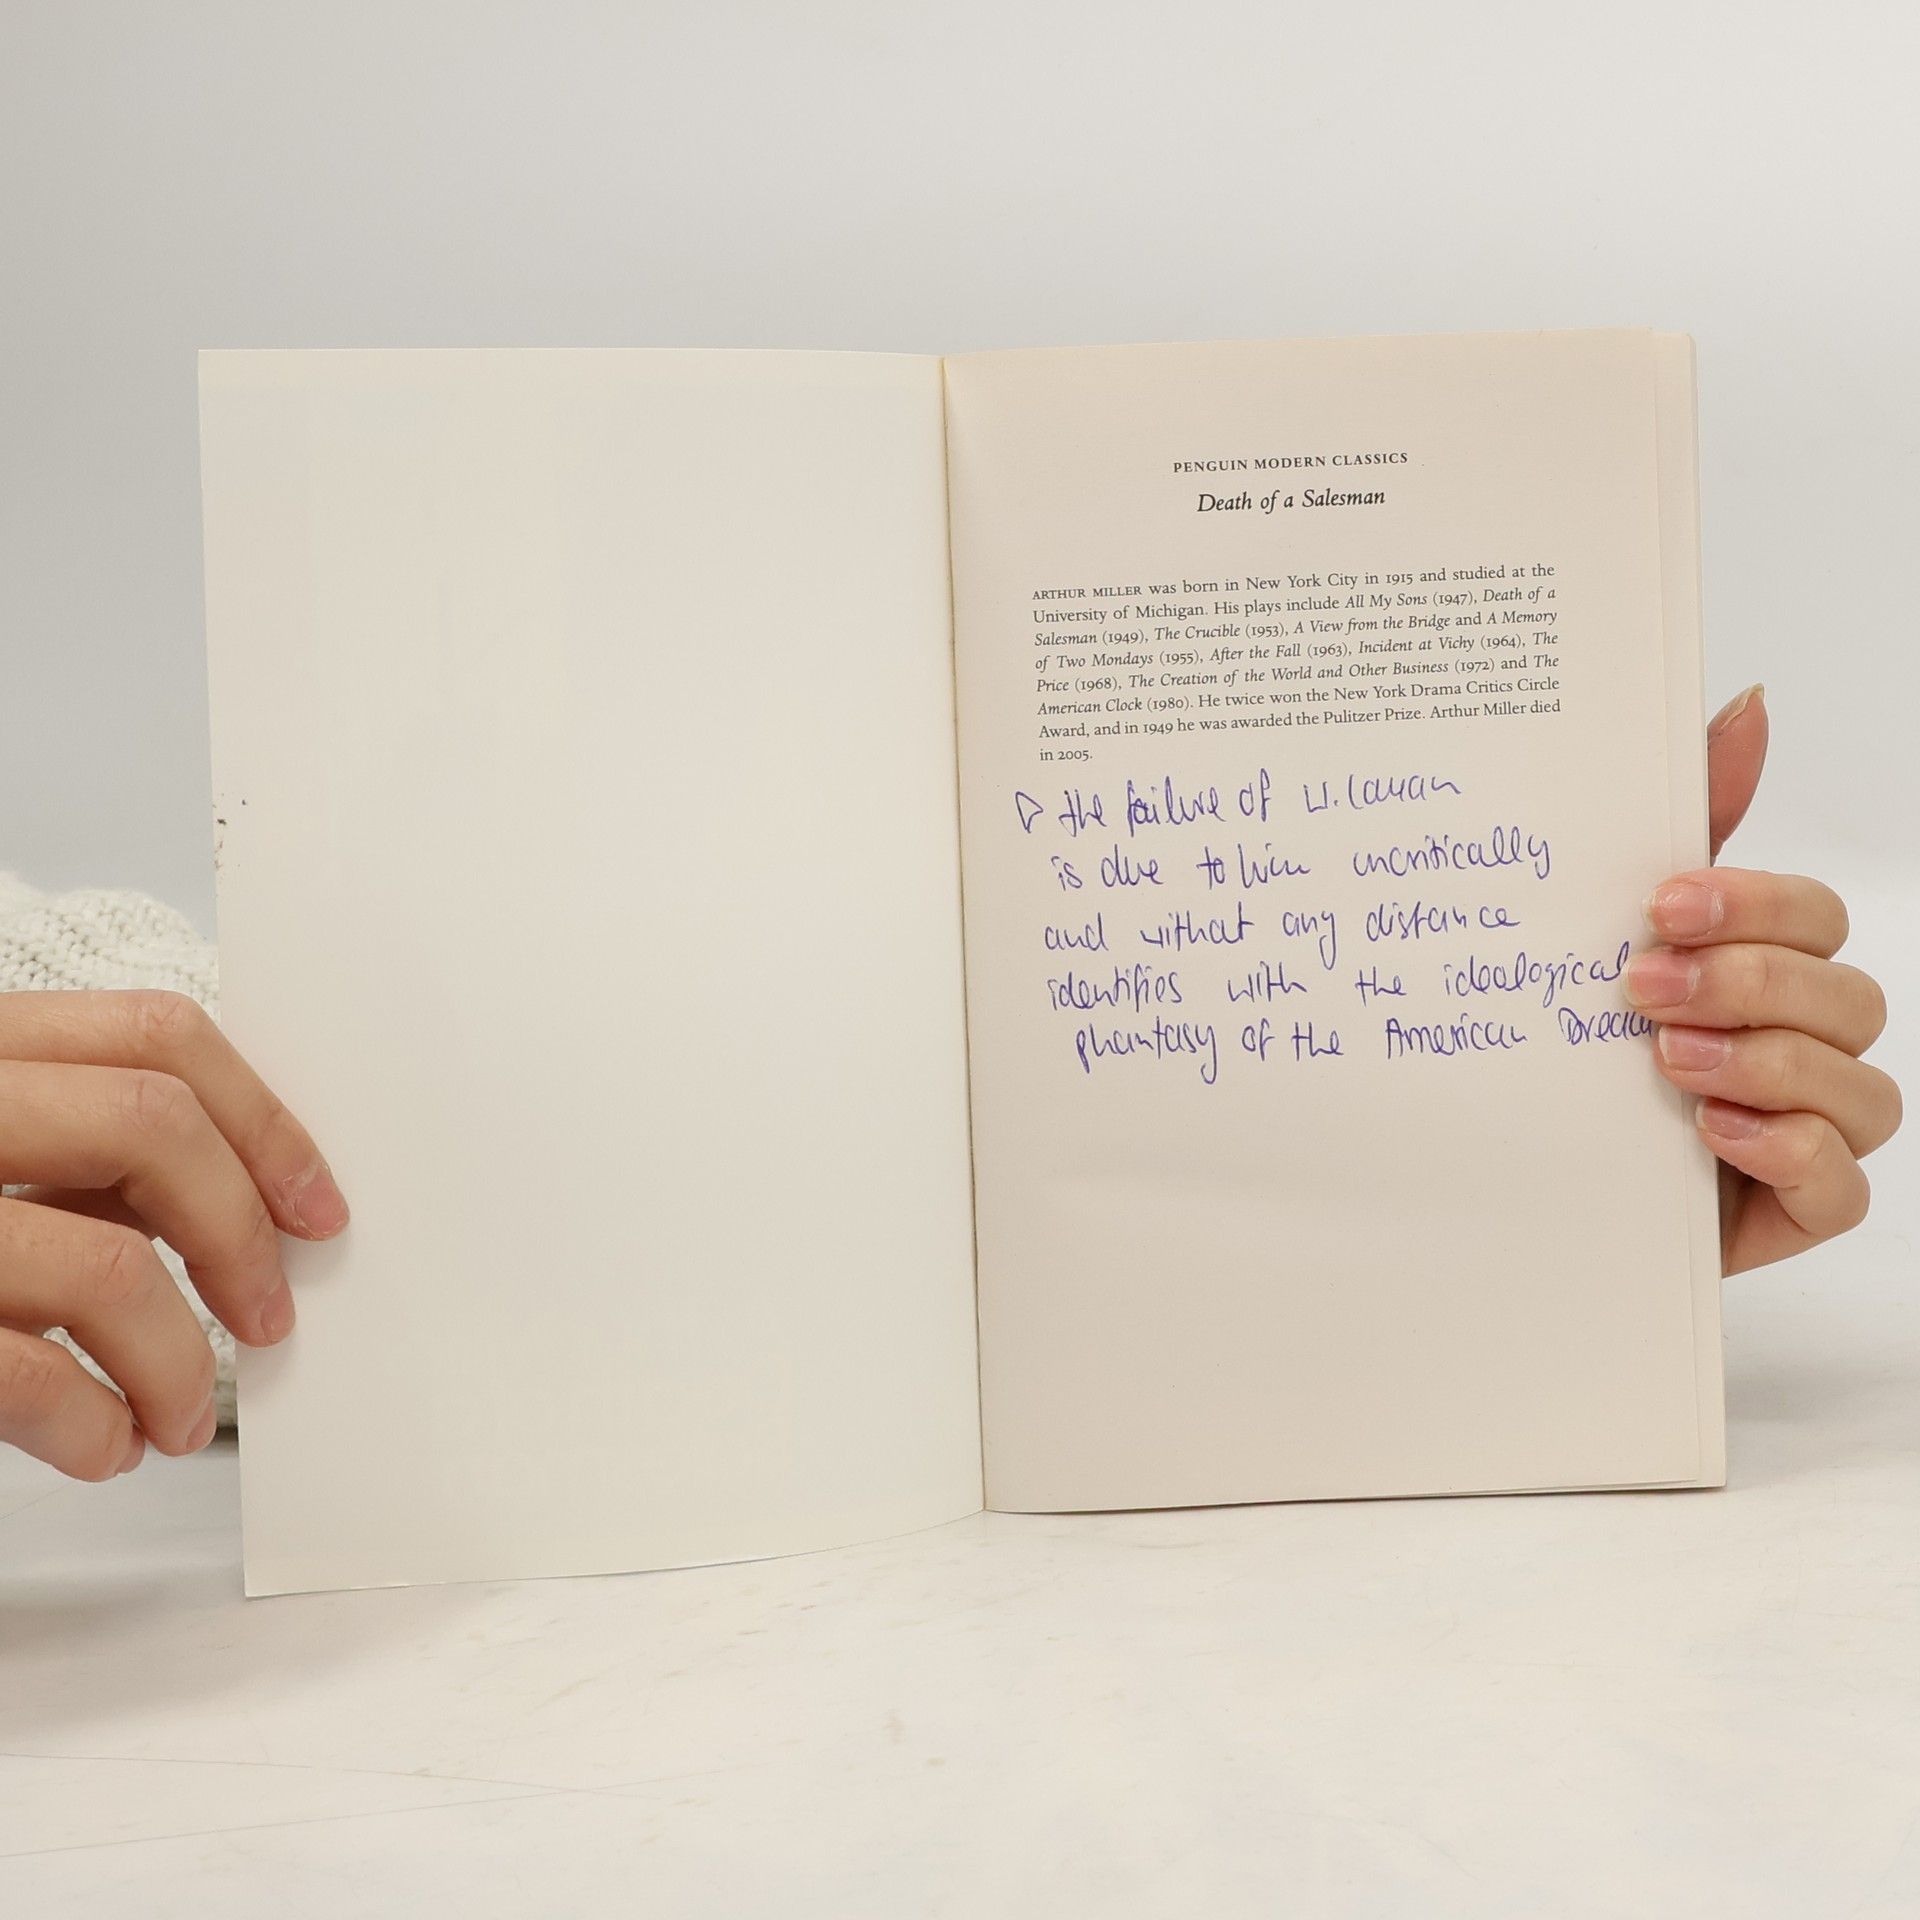 PENGUIN MODERN CLASSICS
Death of a Salesman
ARTHUR MILLER was born in New York City in 1915 and studied at the
University of Michigan. His plays include All My Sons (1947), Death of a
Salesman (1949), The Crucible (1953), A View from the Bridge and A Memory
of Two Mondays (1955), After the Fall (1963), Incident at Vichy (1964), The
Price (1968), The Creation of the World and Other Business (1972) and The
American Clock (1980). He twice won the New York Drama Critics Circle
Award, and in 1949 he was awarded the Pulitzer Prize. Arthur Miller died
in 2005.
the failure of W. Loman
is due to him uncritically
and without any distance
identifies with the idealogical
phantasy of the American Dream